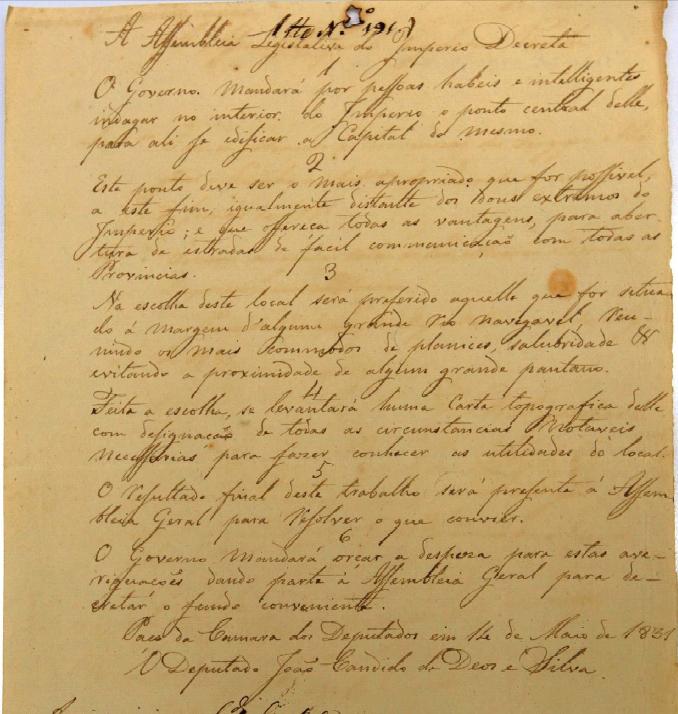 A Assembleia Legislativa do Imperio Decreta
1
O Governo Mandará por pessoas habeis e intelligentes
indagar no interior do Imperio o ponto central delle,
para ali se edificar a Capital do mesmo.
2
Este ponto deve ser o mais apropriado que for possivel,
a este fim, igualmente distante dos dous extremos do
Imperio; e que offereca todas as vantagens, para aber-
tura de estradas de facil communicação com todas as
Provincias.
3
Na escolha deste local será preferido aquelle que for situa
do á margem d'algum grande rio navegavel, reu-
nindo os mais commodos de planices, salubridade &
evitando a proximidade de algum grande pantano.
4
Feita a escolha, se levantará huma Carta topografica delle
com designação de todas as circunstancias Notaveis
Necessarias para fazer conhecer as utilidades do local.
5
O resultado final deste trabalho será presente á Assem
bleia Geral para resolver o que convier.
6
O Governo Mandará orcar a despeza para estas ave-
riguações dando parte á Assembleia Geral para de-
cretar o fundo conveniente.
Paco da Camara dos Deputados em 14 de Maio de 1831
O Deputado João Candido de Deos e Silva